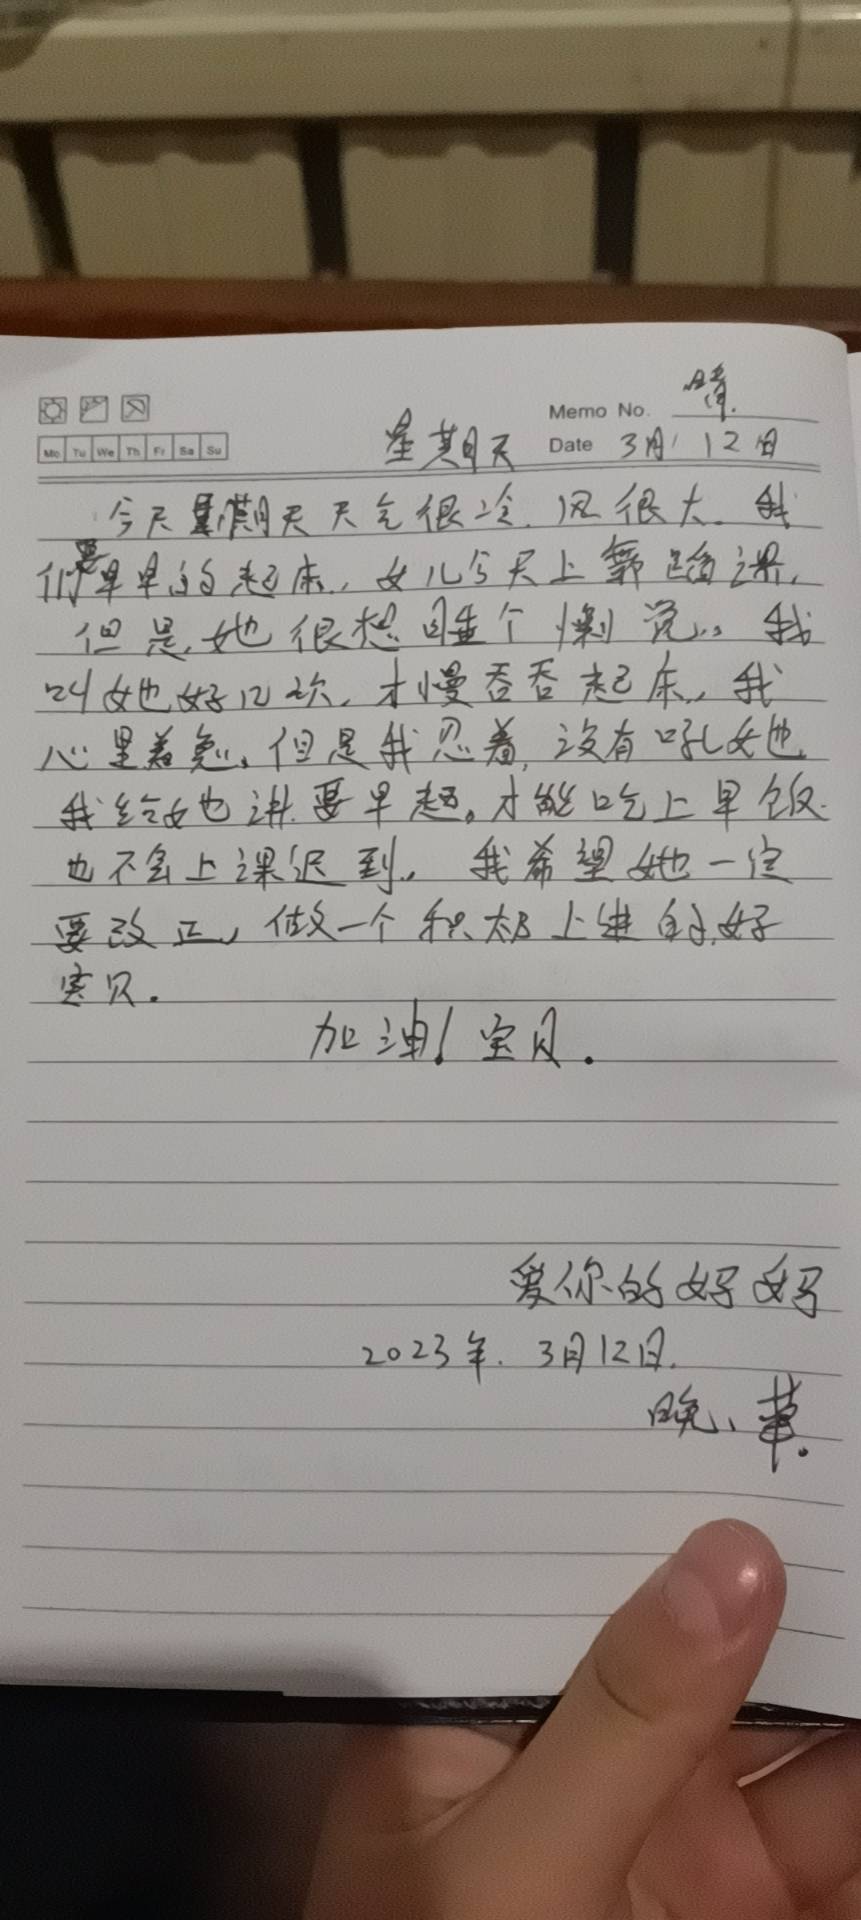 晴
Memo No.
Mo Tu We Th Fr Sa Su
星期天 Date 3月12日
今天星期天天气很冷.风很大.我
们要早早的起床,女儿今天上舞蹈课,
但是,她很想睡个懒觉,我
叫她好几次,才慢吞吞起床,我
心里着急,但是我忍着,没有吼她
我给她讲要早起。才能吃上早饭
也不会上课迟到,我希望她一定
要改正,做一个积极上进的好
宝贝.
加油!宝贝.
爱你的妈妈
2023年.3月12日.
晚、